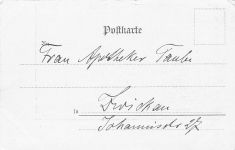 Postkarte
Frau Apotheker Taube
in Zwickau
Johannisstr 27